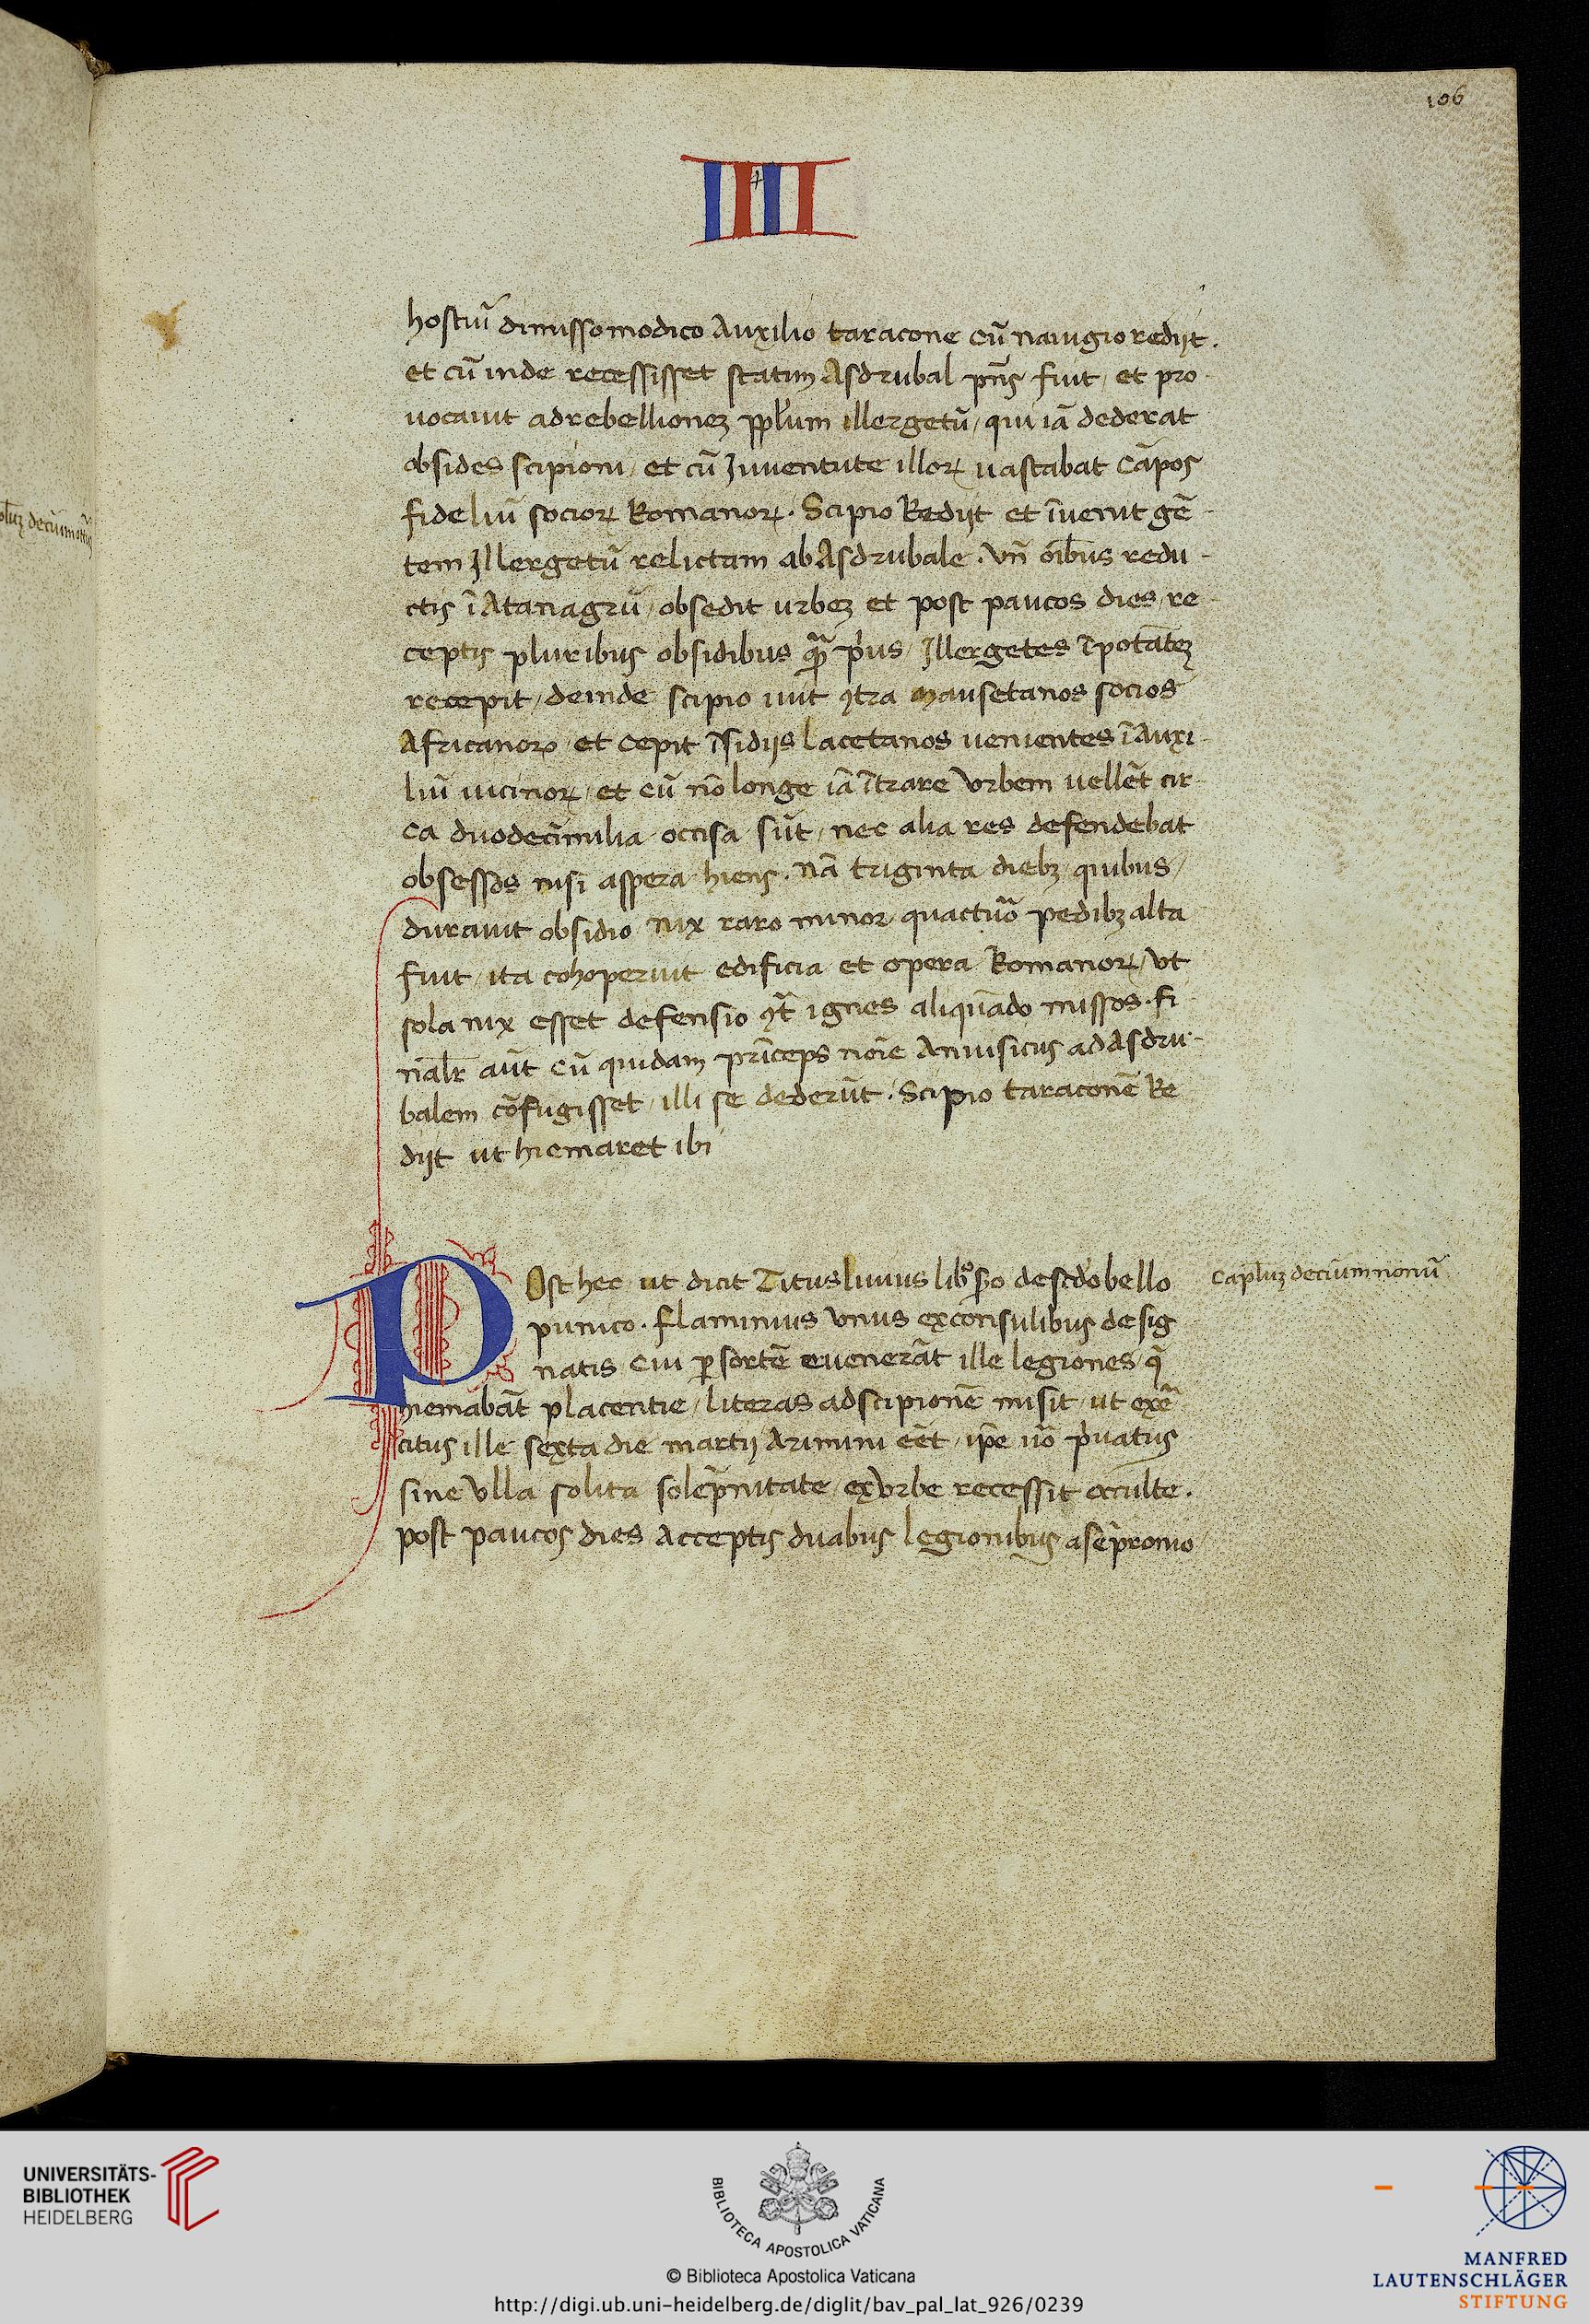 106
IIII
hostiū dimisso modico auxilio taracone cū nauigio redijt.
et cū inde recessisset statim Asdrubal p̄ns fuit / et pro
uocauit ad rebellionez pp̄lum illergetū / qui iā dederat
obsides scipioni / et cū Iuuentute illoꝝ uastabat cāpos
fideliū socioꝝ Romanoꝝ. Scipio Redijt et īuenit gē
tem Illergetū relictam ab Asdrubale. vn̄ oībus redu
ctis ī Atanagrū / obsedit urbez et post paucos dies / re
ceptis pluribus obsidibus quā p̄us / Illergetes ī potātez
recepit / deinde scipio iuit ꝯtra Mausetanos socios
Africanoꝝ / et cepit īsidijs lacetanos uenientes ī auxi
liū uicinoꝝ / et cū nō longe iā ītrare vrbem uellēt cir
ca duodecimilia occisa sūt / nec alia res defendebat
obsessos nisi aspera hiens. nā triginta diebz / quibus /
durauit obsidio nix raro minor quactuō pedibz alta
fuit / ita cohoperuit edificia et opera Romanoꝝ / vt
sola nix esset defensio ꝯt̄ ignes aliquādo missos. fi
nalr̄ aūt cū quidam prīceps noīe Amusicus ad Asdru
balem cōfugisset / illi se dederūt. Scipio taraconē Re
dijt ut hiemaret ibi
Post hec ut dicit Titus liuius libº p̄o de scd̄o bello
punico. flaminius vnus ex consulibus desig
natis cui ꝑ sortē euenerāt ille legiones q̄
hiemabāt placentie / literas ad scipionē misit / ut exē
citus ille sexta die martij Arimini eēt / ip̄e ūo p̄uatus
sine vlla solita solēpnitate / ex vrbe recessit occulte.
post paucos dies acceptis duabus legionibus a sēpronio
capl̄uz decimum nonū
UNIVERSITÄTS-
BIBLIOTHEK
HEIDELBERG
BIBLIOTECA APOSTOLICA VATICANA
© Biblioteca Apostolica Vaticana
http://digi.ub.uni-heidelberg.de/diglit/bav_pal_lat_926/0239
MANFRED
LAUTENSCHLÄGER
STIFTUNG